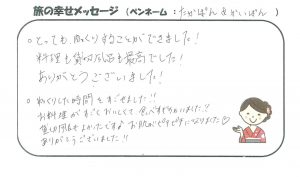 旅の幸せメッセージ (ペンネーム : たかぱん & かいぱん )
○とっても ゆっくりすることができました!
料理も貸切風呂も最高でした!
ありがとうございました!
○ゆっくりした時間をすごせました!!
お料理がすごくおいしくて 食べすぎちゃいました!!
貸切風呂もよかったですよ お肌がピチピチになりました♡
ありがとうございました!!